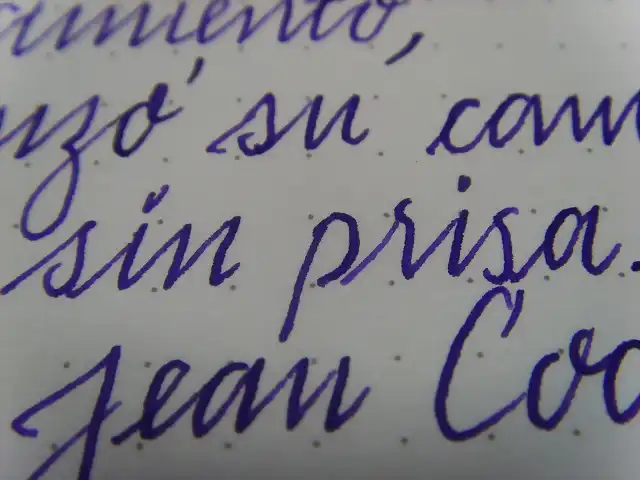 amiento,
nzó su cam
sin prisa.
Jean Coc